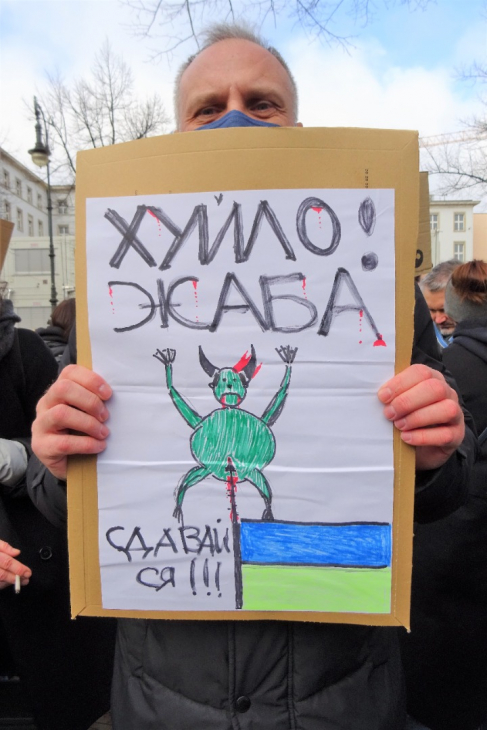 ХУЙЛО!
ЖАБА
СДАВАЙ
СЯ!!!